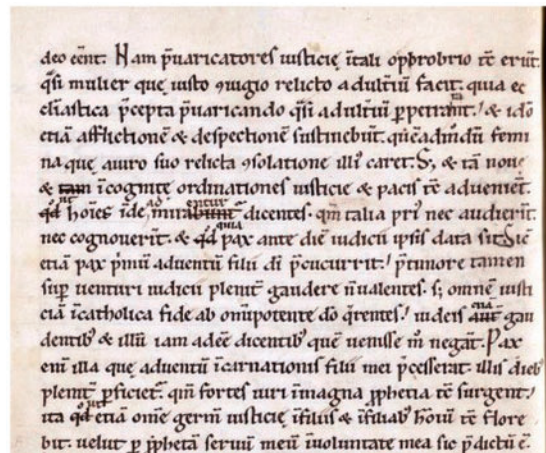 deo eēnt. Nam p̄uaricatores iusticie ītali opp̄robrio tc̄ erūt.
q̄si mulier que iusto ꝯiugio relicto adultiū facit. quia ec
cliastica p̄cepta p̄uaricando q̄si adultiū ꝑpetrant. & idō
etiā afflictionē & despectionē sustinebūt. quēadmdū femi
na que a uiro suo relicta ꝯsolatione illiꝰ caret. S; & tā noue
& tam īcognite ordinationes iusticie & pacis tc̄ adueniēt.
qd ut hoīes īde admirabunt entur dicentes. qm̄ talia priꝰ nec audierūt.
nec cognouerūt. & qd quia pax ante diē iudicii ipsis data sit. Sic
etiā pax p̄mū aduentū filii dī p̄cucurrit. p̄timore tamen
suꝑ uenturi iudicii pleniꝰ gaudere n̄ ualentes. s; omnē iusti
ciā īcatholica fide ab om̄ipotente dō q̄rentes. iudeis aut̄ quia gau
dentibꝰ & illū iam adeē dicentibꝰ quē uenisse m̄ negāt. Pax
enī illa que aduentū īcarnationis filii mei p̄cesserat. illis diebꝰ
pleniꝰ ꝑficiet̄. qm̄ fortes uiri īmagna ꝓphetia tc̄ surgent.
ita qd ut etiā ome germ̄ iusticie īfiliis & īfiliabꝰ hoīū tc̄ flore
bit. uelut ꝑ ꝓphetā seruū meū īuoluntate mea sic p̄dictū ē.